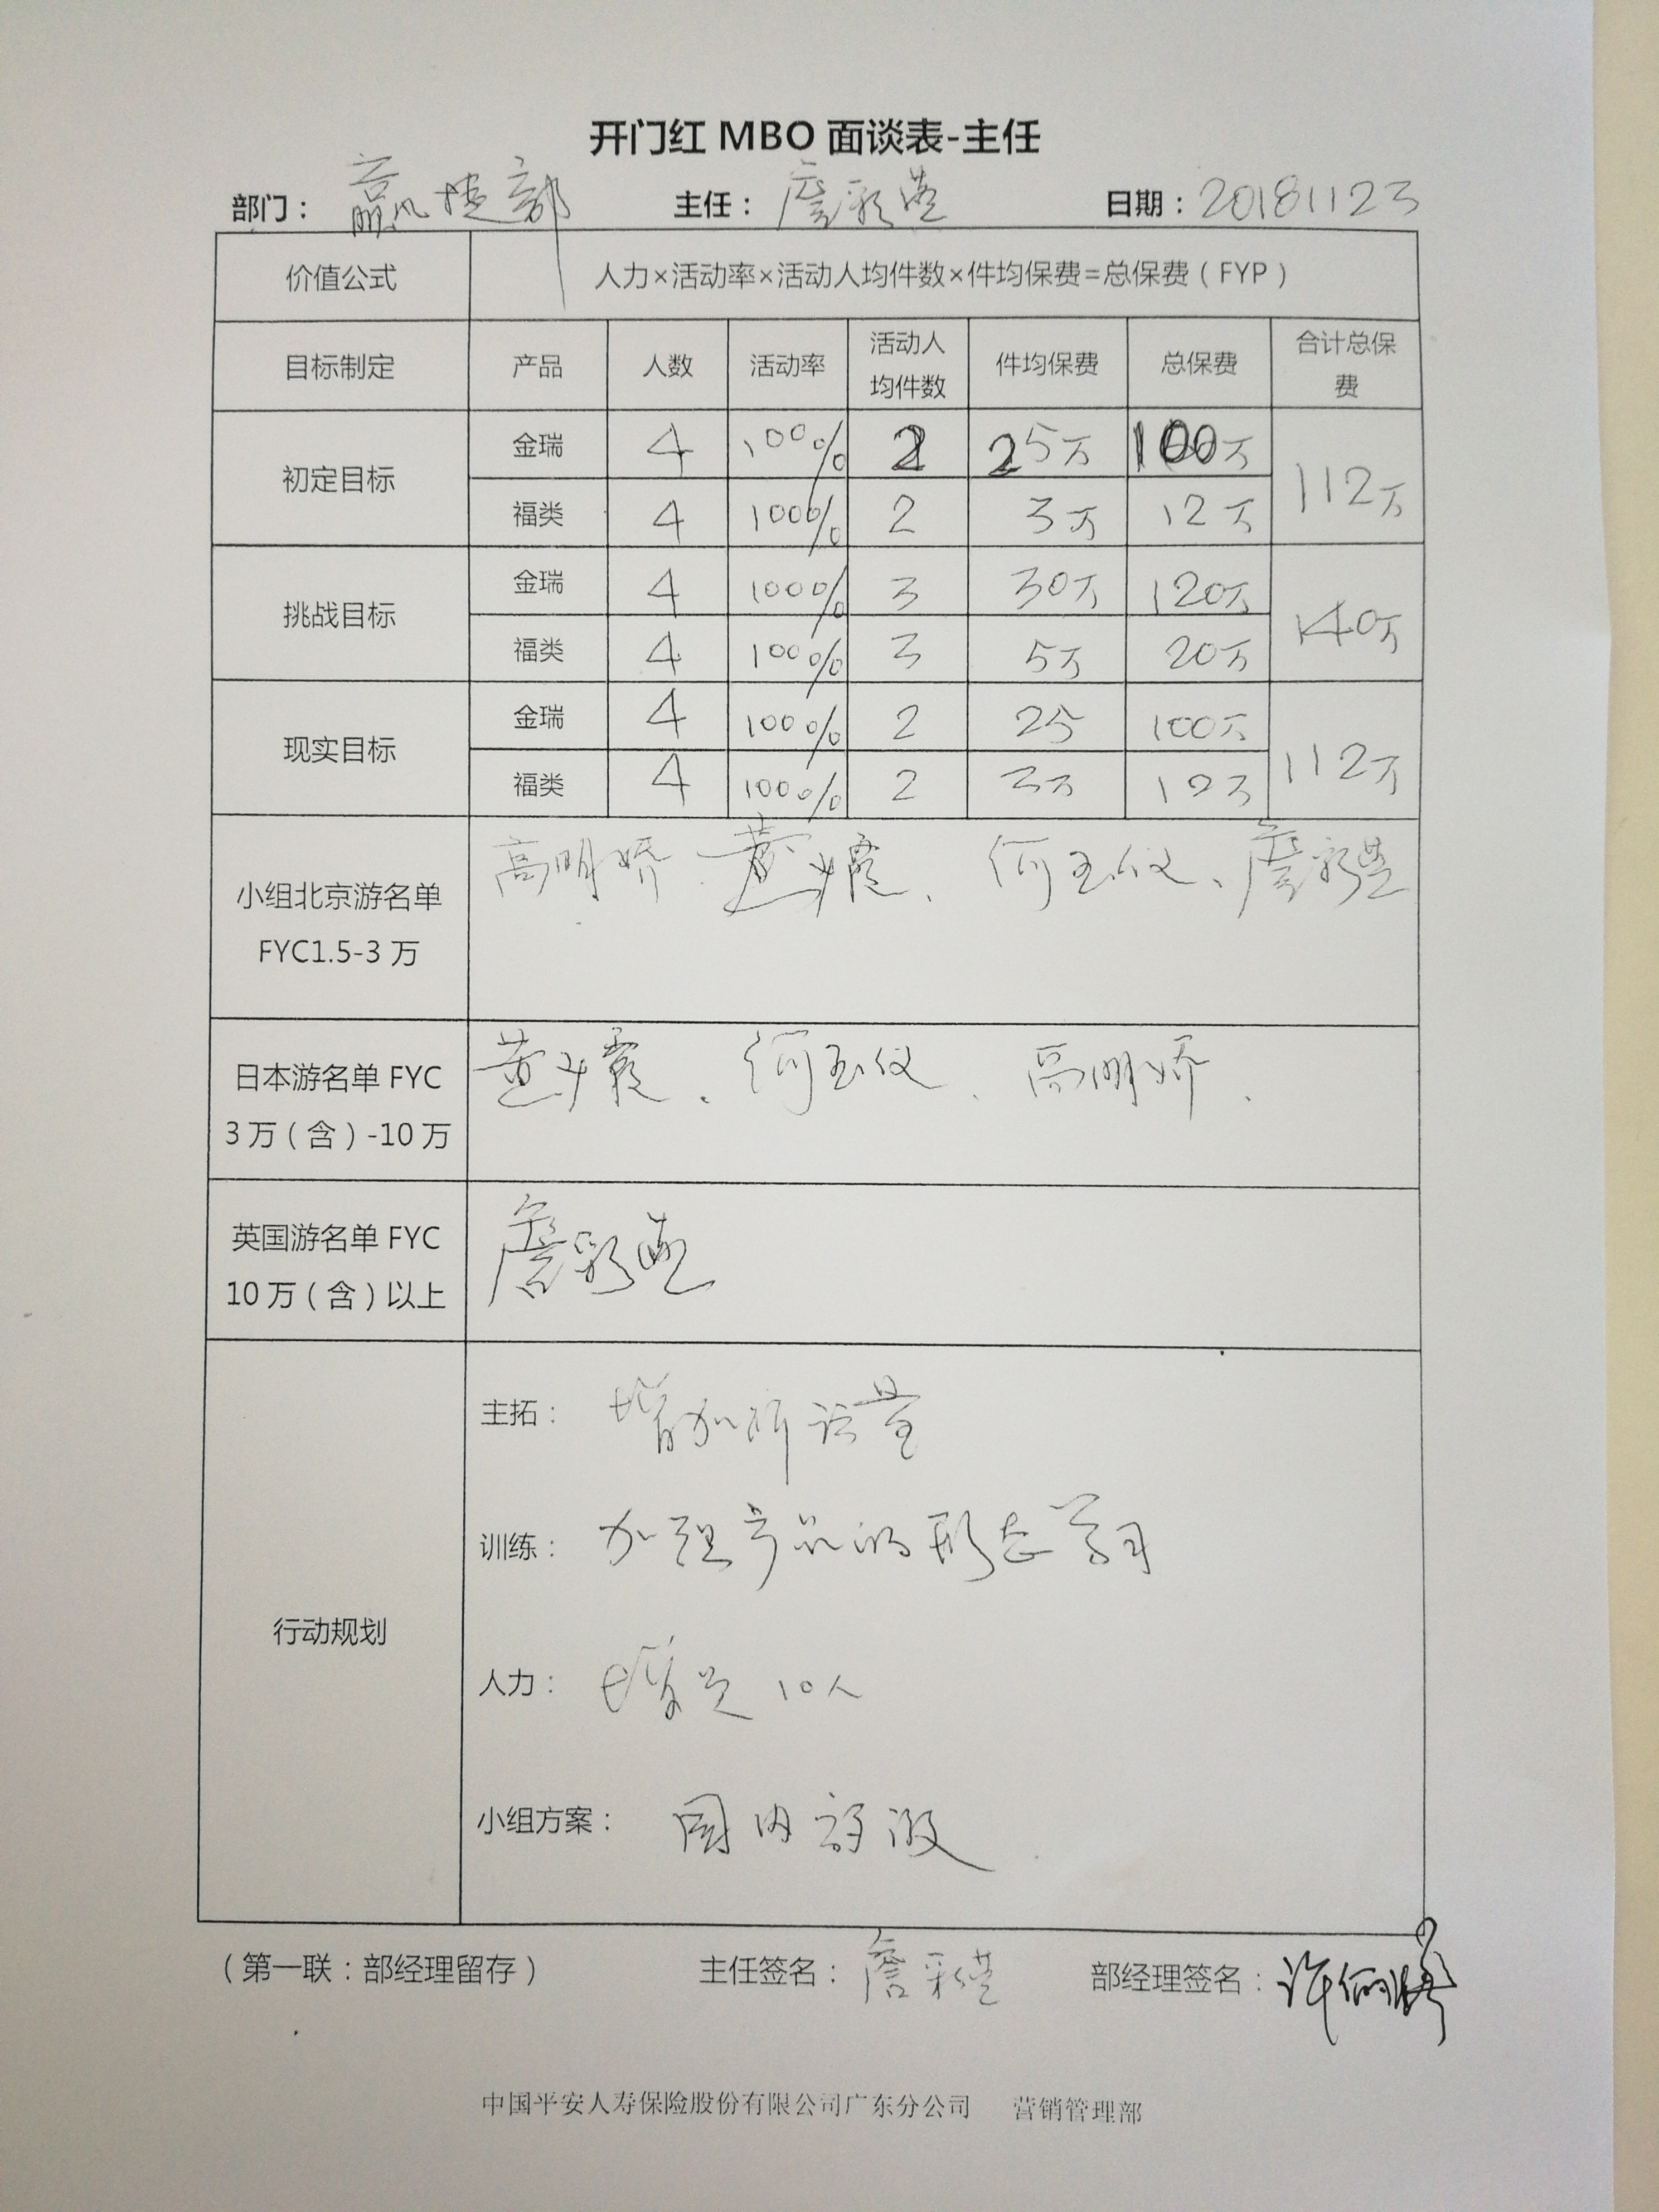 开门红 MBO 面谈表-主任
部门： 赢捷部 主任： 詹彩莲 日期：20181123
价值公式 人力×活动率×活动人均件数×件均保费=总保费（FYP）
目标制定 产品 人数 活动率 活动人均件数 件均保费 总保费 合计总保费
初定目标 金瑞 4 100% 2 25万 100万 112万
福类 4 100% 2 3万 12万
挑战目标 金瑞 4 100% 3 30万 120万 140万
福类 4 100% 3 5万 20万
现实目标 金瑞 4 100% 2 25 100万 112万
福类 4 100% 2 3万 12万
小组北京游名单 高明娇、黄少霞、何玉仪、詹彩莲
FYC1.5-3 万
日本游名单 FYC 黄少霞、何玉仪、高明娇、
3 万（含）-10 万
英国游名单 FYC 詹彩莲
10 万（含）以上
行动规划
主拓： 增加拆访量
训练： 加强产品的形态学习
人力： 增员10人
小组方案： 国内旅游
（第一联：部经理留存） 主任签名：詹彩莲 部经理签名：
中国平安人寿保险股份有限公司广东分公司 营销管理部